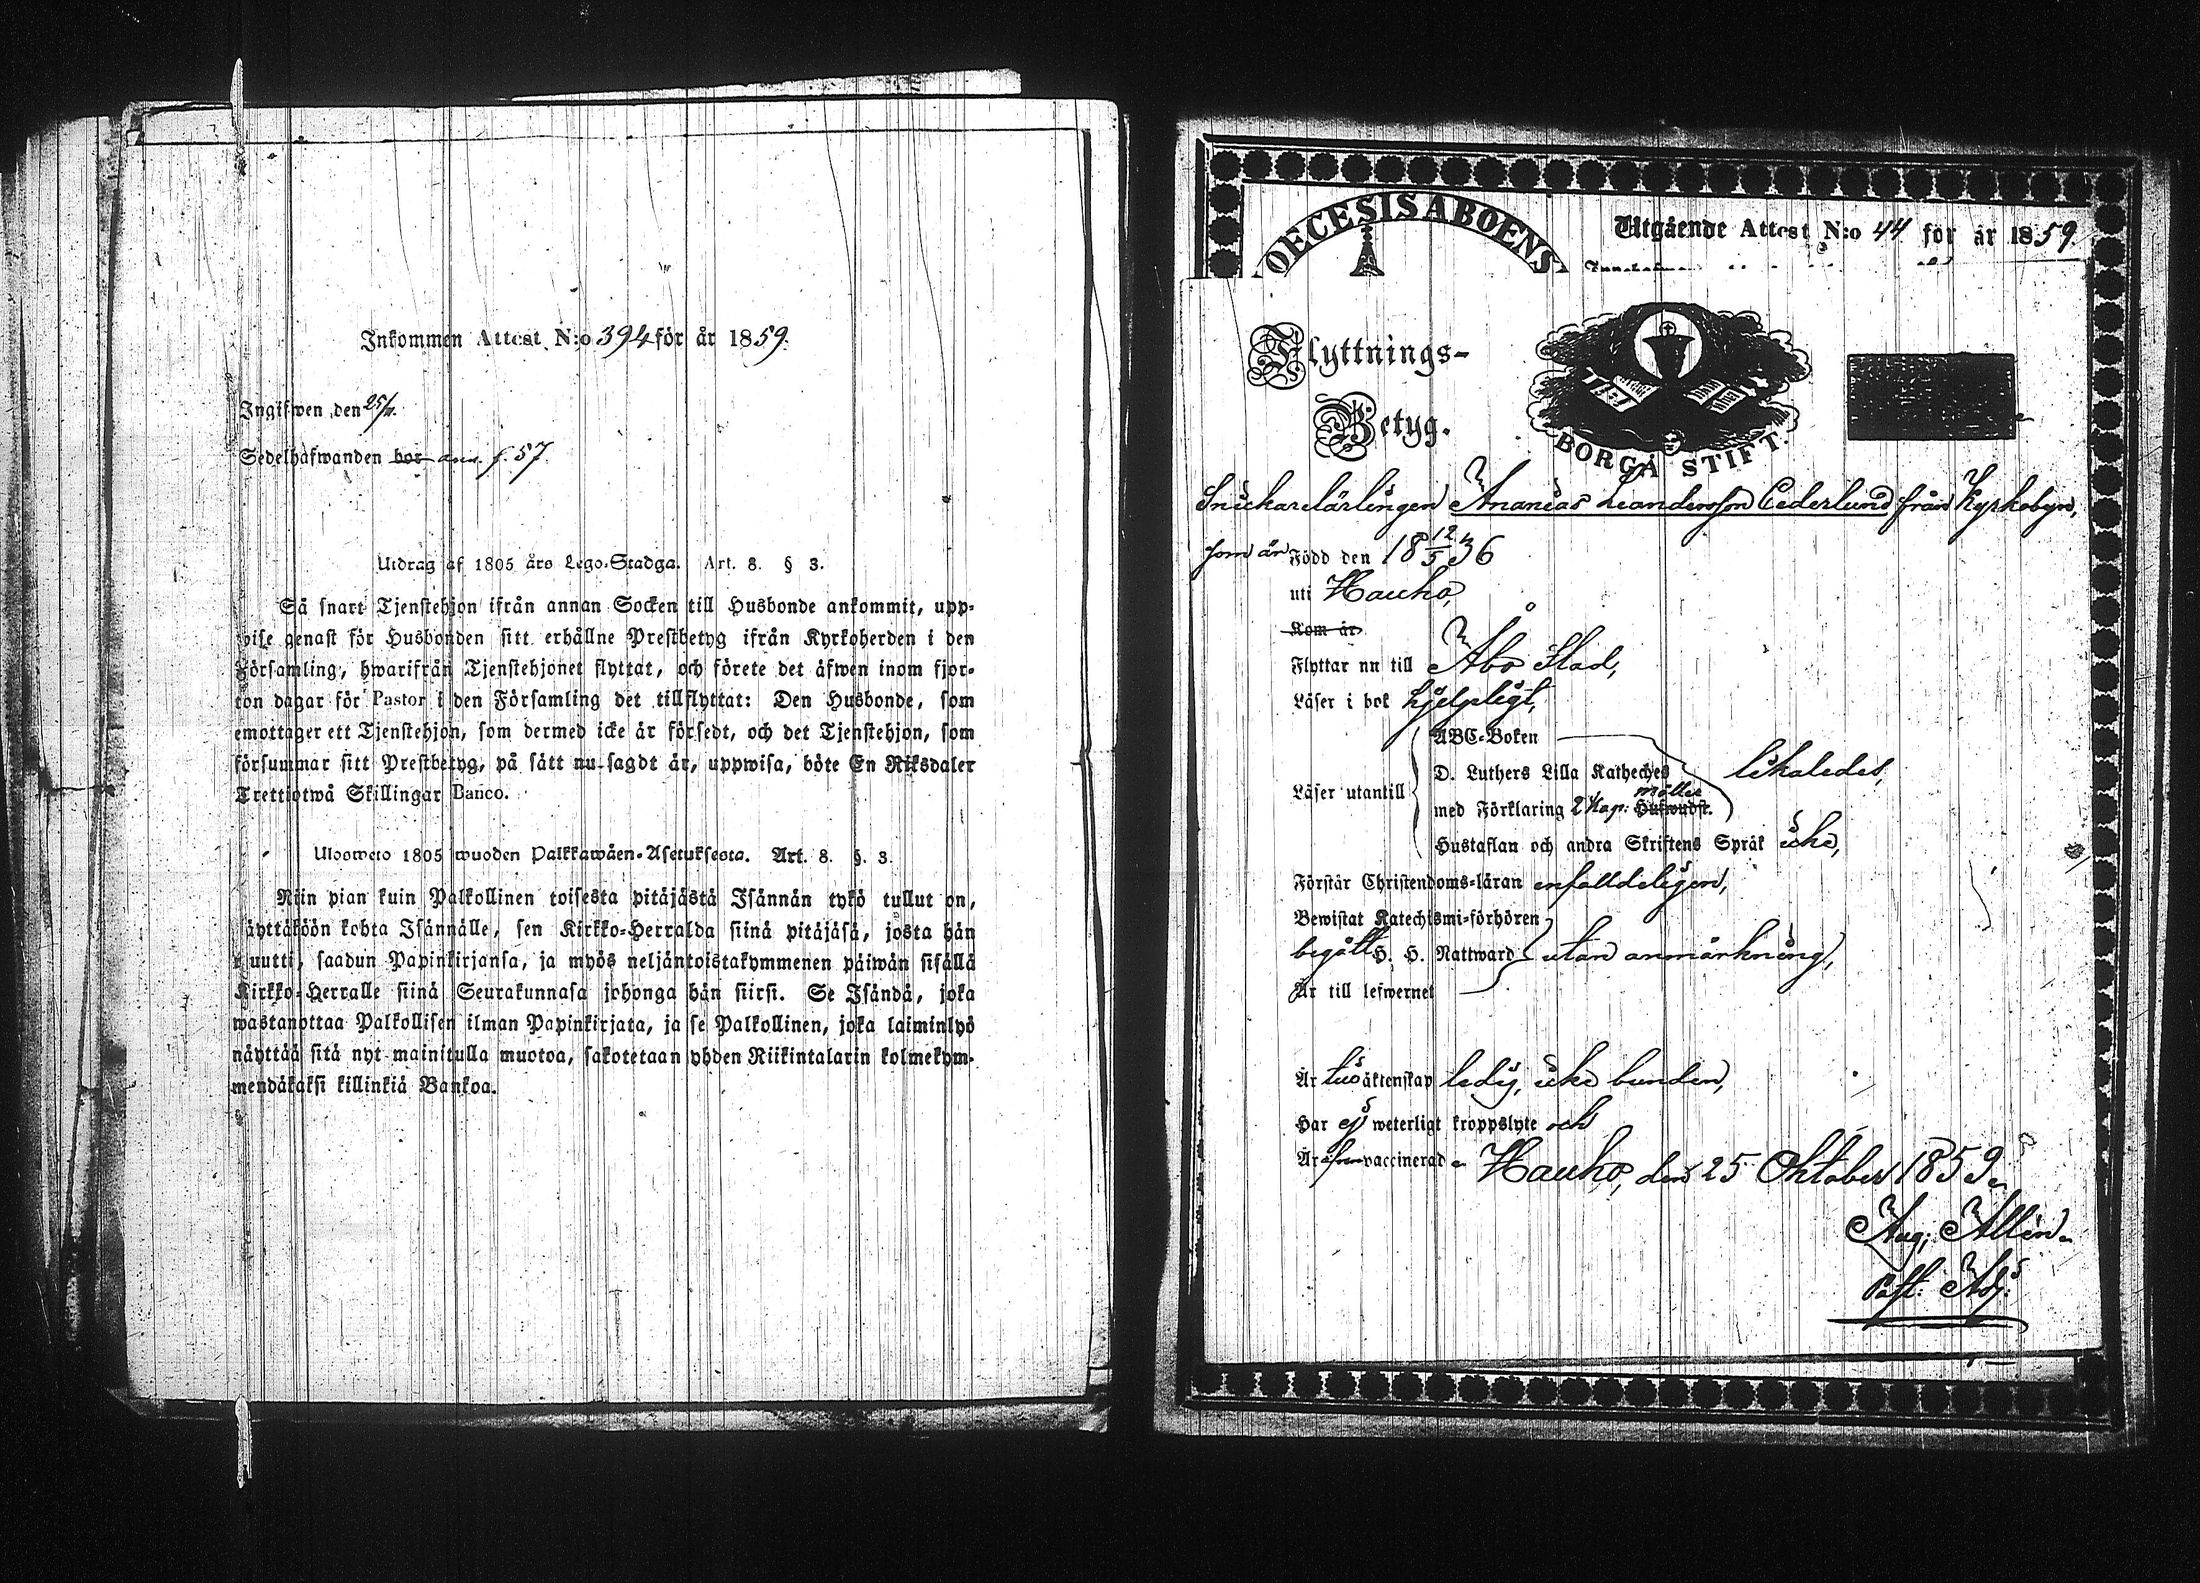 Inkommen Attest N:o 394 för år 1859.
Ingifwen den 25/11.
Sedelhafwanden bor ann. f. 57.
Utdrag af 1805 års Lego-Stadga. Art. 8. § 3.
Så snart Tjenstehjon ifrån annan Socken till Husbonde ankommit, upp-
wise genast för Husbonden sitt erhållne Prestbetyg ifrån Kyrkoherden i den
Församling, hwarifrån Tjenstehjonet flyttat, och förete det äfwen inom fjor-
ton dagar för Pastor i den Församling det tillflyttat: Den Husbonde, som
emottager ett Tjenstehjon, som dermed icke är försedt, och det Tjenstehjon, som
försummar sitt Prestbetyg, på sätt nu sagdt är, uppwisa, böte En Riksdaler
Trettiotwå Skillingar Banco.
Ulosweto 1805 wuoden Palkkawäen-Asetuksesta. Art. 8. §. 3.
Niin pian kuin Palkollinen toisesta pitäjästä Isännän tykö tullut on,
äyttäköön kohta Isännälle, sen Kirkko-Herralda siinä pitäjäsä, josta hän
muutti, saadun Papinkirjansa, ja myös neljäntoistakymmenen päiwän sisällä
Kirkko-Herralle siinä Seurakunnasa johonga hän siirsi. Se Isändä, joka
wastanottaa Palkollisen ilman Papinkirjata, ja se Palkollinen, joka laiminlyö
näyttää sitä nyt mainitulla muotoa, sakotetaan yhden Riikintalarin kolmekym-
mendäkaksi killinkiä Bankoa.
OECESIS ABOENS
Utgående Attest N:o 44 för år 1859.
Flyttnings-
Betyg.
BORGÅ STIFT.
Snickarelärlingen Ananias Leandersson Cederlund från Kyrkobyn,
som är Född den 18 12/5 36
uti Hauho,
Kom år
Flyttar nu till Åbo Stad,
Läser i bok hjelpligt,
ABC-Boken
D. Luthers Lilla Katheches likaledes,
Läser utantill
med Förklaring 2 Kap: Hufwudst.
Hustaflan och andra Skriftens Språk icke,
Förstår Christendoms-läran enfalldeligen,
Bewistat Katechismi-förhören
begått H. H. Nattward utan anmärkning,
Är till lefwernet
Är till äktenskap ledig, icke bunden,
Har ej weterligt kroppslyte och
Är äfven vaccinerad. Hauho, den 25 Oktober 1859.
Aug. Allén.
Past. Adj: